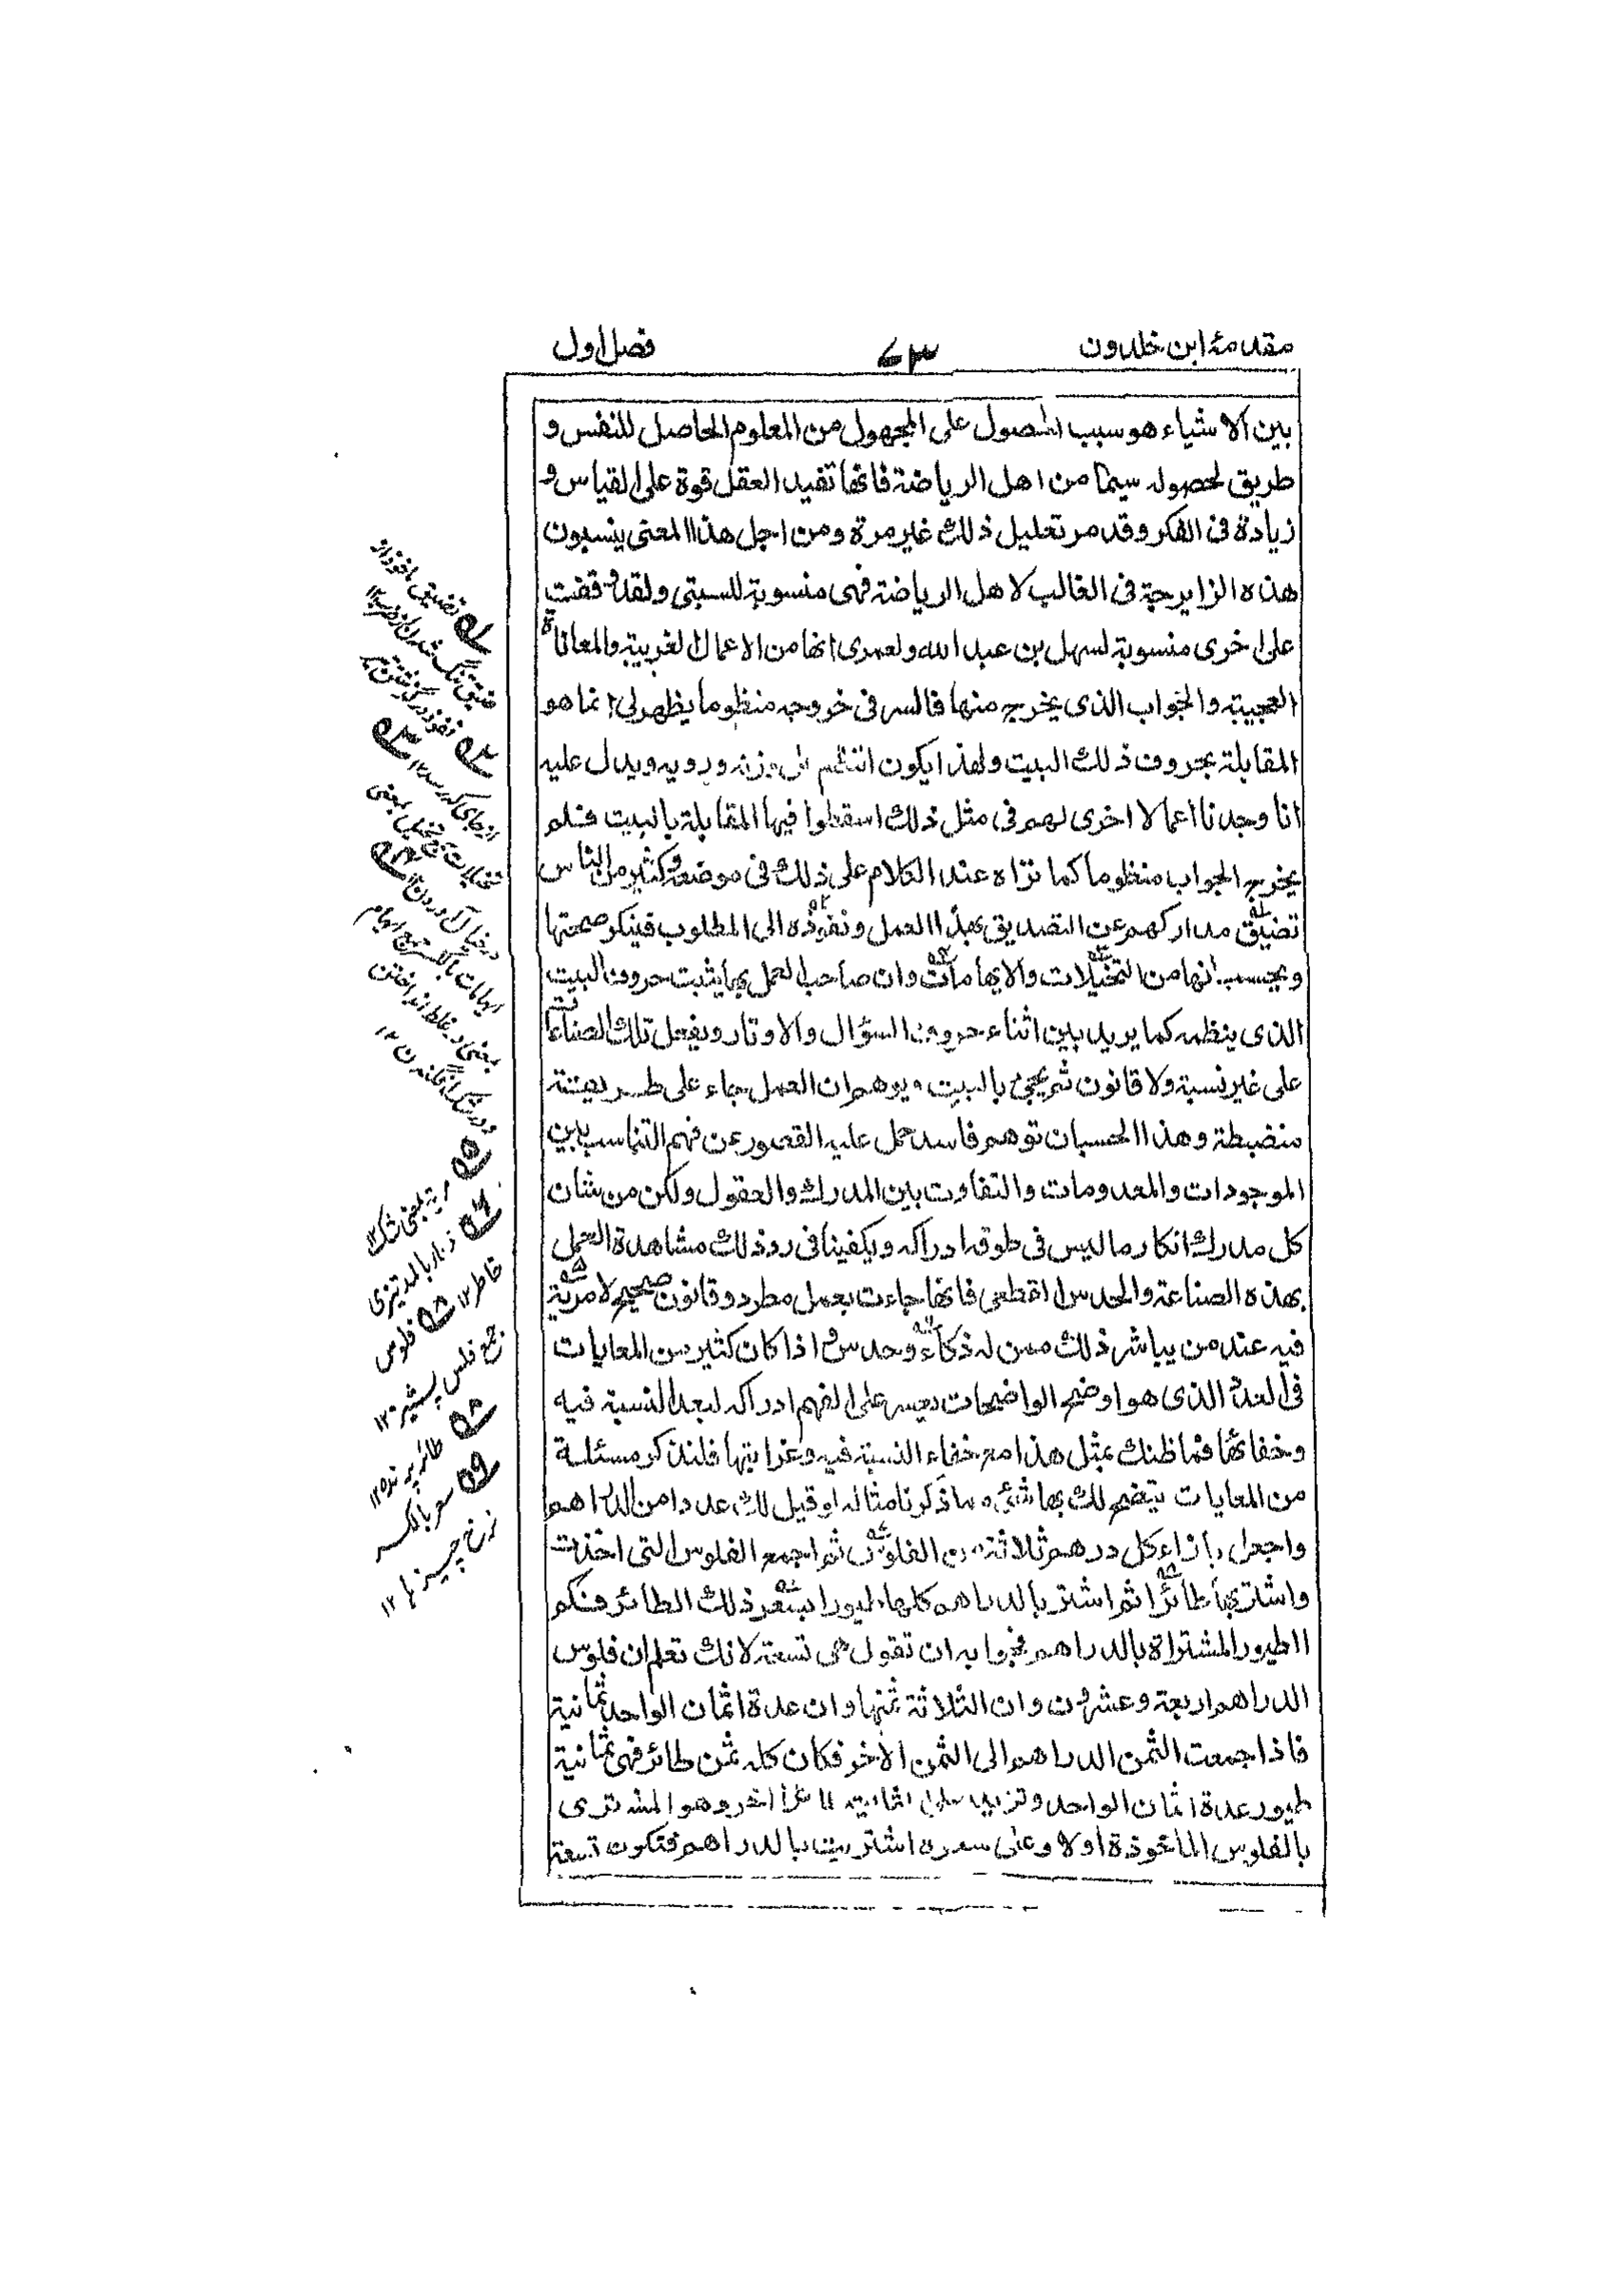 مقدمۀ ابن خلدون
۷۳
فصل اول
بين الاشياء هو سبب الحصول على المجهول من المعلوم الحاصل للنفس و
طريق لحصوله سيما من اهل الرياضة فانها تفيد العقل قوة على القياس و
زيادة فى الفكر وقد مر تعليل ذلك غير مرة ومن اجل هذا المعنى ينسبون
هذه الزايرجة فى الغالب لاهل الرياضة فهى منسوبة للسبتى ولقد وقفت
على اخرى منسوبة لسهل بن عبد الله ولعمرى انها من الاعمال الغريبة والمعاناة
العجيبة والجواب الذى يخرج منها فالسر فى خروجه منظوما يظهر لى انما هو
المقابلة بحروف ذلك البيت ولهذا يكون النظم على وزنه ورويه ويدل عليه
انا وجدنا اعمالا اخرى لهم فى مثل ذلك اسقطوا فيها المقابلة بالبيت فلم
يخرج الجواب منظوما كما تراه عند الكلام على ذلك فى موضعه وكثير من الناس
تضيق مداركهم عن التصديق بهذا العمل ونفوذه الى المطلوب فينكر صحتها
ويحسب انها من التخيلات والايهامات وان صاحب العمل بها يثبت حروف البيت
الذى ينظمه كما يريد بين اثناء حروف السؤال والاوتار ويفعل تلك الصناعات
على غير نسبة ولا قانون ثم يجئ بالبيت ويوهم ان العمل جاء على طريقة
منضبطة وهذا الحسبان توهم فاسد حمل عليه القصور عن فهم التناسب بين
الموجودات والمعدومات والتفاوت بين المدرك والعقول ولكن من شان
كل مدرك انكار ما ليس فى طوقه ادراكه ويكفينا فى رد ذلك مشاهدة العمل
بهذه الصناعة والحدس القطعى فانها جاءت بعمل مطرد وقانون صحيح لا مرية
فيه عند من يباشر ذلك ممن له ذكاء وحدس واذا كان كثير من المعايات
فى العدد الذى هو اوضح الواضحات يعسر على الفهم ادراكه لبعد النسبة فيه
وخفائها فما ظنك بمثل هذا مع خفاء النسبة فيه وغرابتها فلنذكر مسئلة
من المعايات يتضح لك بها شئ مما ذكرنا مثاله لو قيل لك عددا من الدراهم
واجعل بازاء كل درهم ثلاثة من الفلوس ثم اجمع الفلوس التى اخذت
واشتر بها طائرا ثم اشتر بالدراهم كلها طيورا بسعر ذلك الطائر فكم
الطيور المشتراة بالدراهم فجوابه ان تقول هى تسعة لانك تعلم ان فلوس
الدراهم اربعة وعشرون وان الثلاثة ثمنها وان عدة اثمان الواحد ثمانية
فاذا جمعت الثمن الدراهم الى الثمن الاخر فكان كله ثمن طائر فهى ثمانية
طيور عدة اثمان الواحد وتزيد على الثمانية طائرا اخر وهو المشترى
بالفلوس الماخوذة اولا وعلى سعره اشتريت بالدراهم فتكون تسعة
تضيق ماخوذ از
ضيق تنگ شدن
نفوذ در گذشتن
تخيلات جمع تخيل بمعنى
در خيال آوردن
ايهامات بالكسر جمع ايهام
بمعنى در غلط انداختن
و در شك افگندن ۱۲
۵ مرية بمعنى شك ۱۲
تيزى
خاطر ۱۲ فلوس
جمع فلس پشيز ۱۲
۸ طائر پرنده ۱۲
۹ سعر بالكسر
نرخ چيزها ۱۲